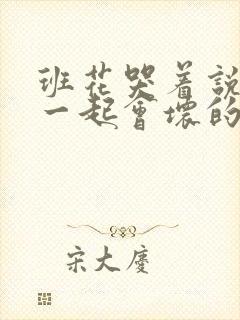 班花哭着說
一起會壞的
宋大慶